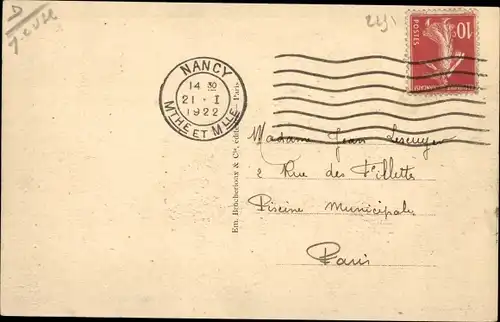 D
NANCY
14 30
21 - I
1922
MTHE ET MLLE
10c
POSTES
Em. Brocherioux & Cie, édit. Paris.
Madame Jean Lescuyer
2 Rue des Fillettes
Piscine Municipale
Paris